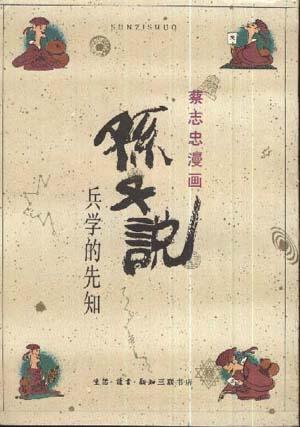 SUNZISHUO
蔡志忠漫画
孫子説
兵学的先知
生活·讀書·新知三联书店